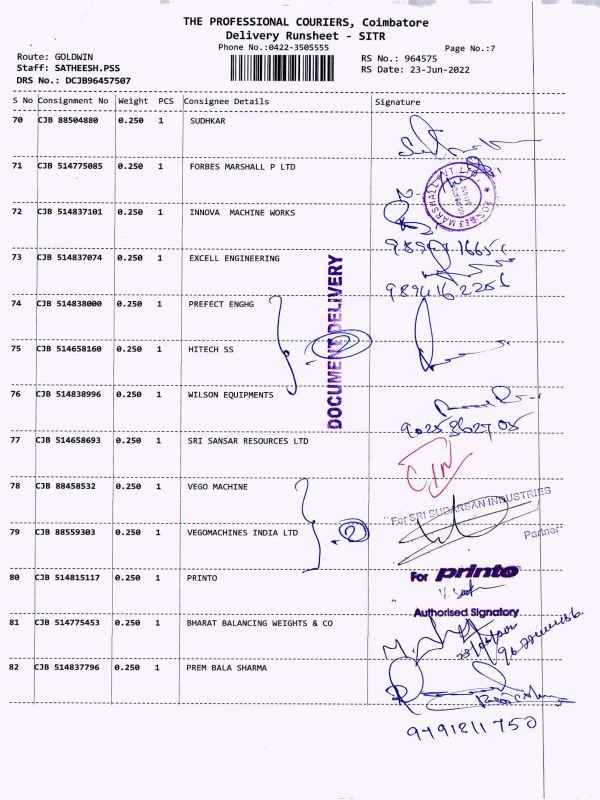 THE PROFESSIONAL COURIERS, Coimbatore
Delivery Runsheet - SITR
Phone No.:0422-3505555
Page No.:7
Route: GOLDWIN
RS No.: 964575
Staff: SATHEESH.PSS
RS Date: 23-Jun-2022
DRS No.: DCJB96457507
S No Consignment No Weight PCS Consignee Details Signature
70 CJB 88504880 0.250 1 SUDHKAR
71 CJB 514775085 0.250 1 FORBES MARSHALL P LTD
72 CJB 514837101 0.250 1 INNOVA MACHINE WORKS
73 CJB 514837074 0.250 1 EXCELL ENGINEERING
9894162256
DOCUMENT DELIVERY
74 CJB 514838000 0.250 1 PREFECT ENGHG
2
75 CJB 514658160 0.250 1 HITECH SS
76 CJB 514838996 0.250 1 WILSON EQUIPMENTS
9025862705
77 CJB 514658693 0.250 1 SRI SANSAR RESOURCES LTD
78 CJB 88458532 0.250 1 VEGO MACHINE
For SRI SUDARSAN INDUSTRIES
Partner
79 CJB 88559303 0.250 1 VEGOMACHINES INDIA LTD
2
80 CJB 514815117 0.250 1 PRINTO
For printo
Authorised Signatory
81 CJB 514775453 0.250 1 BHARAT BALANCING WEIGHTS & CO
82 CJB 514837796 0.250 1 PREM BALA SHARMA
9791211750